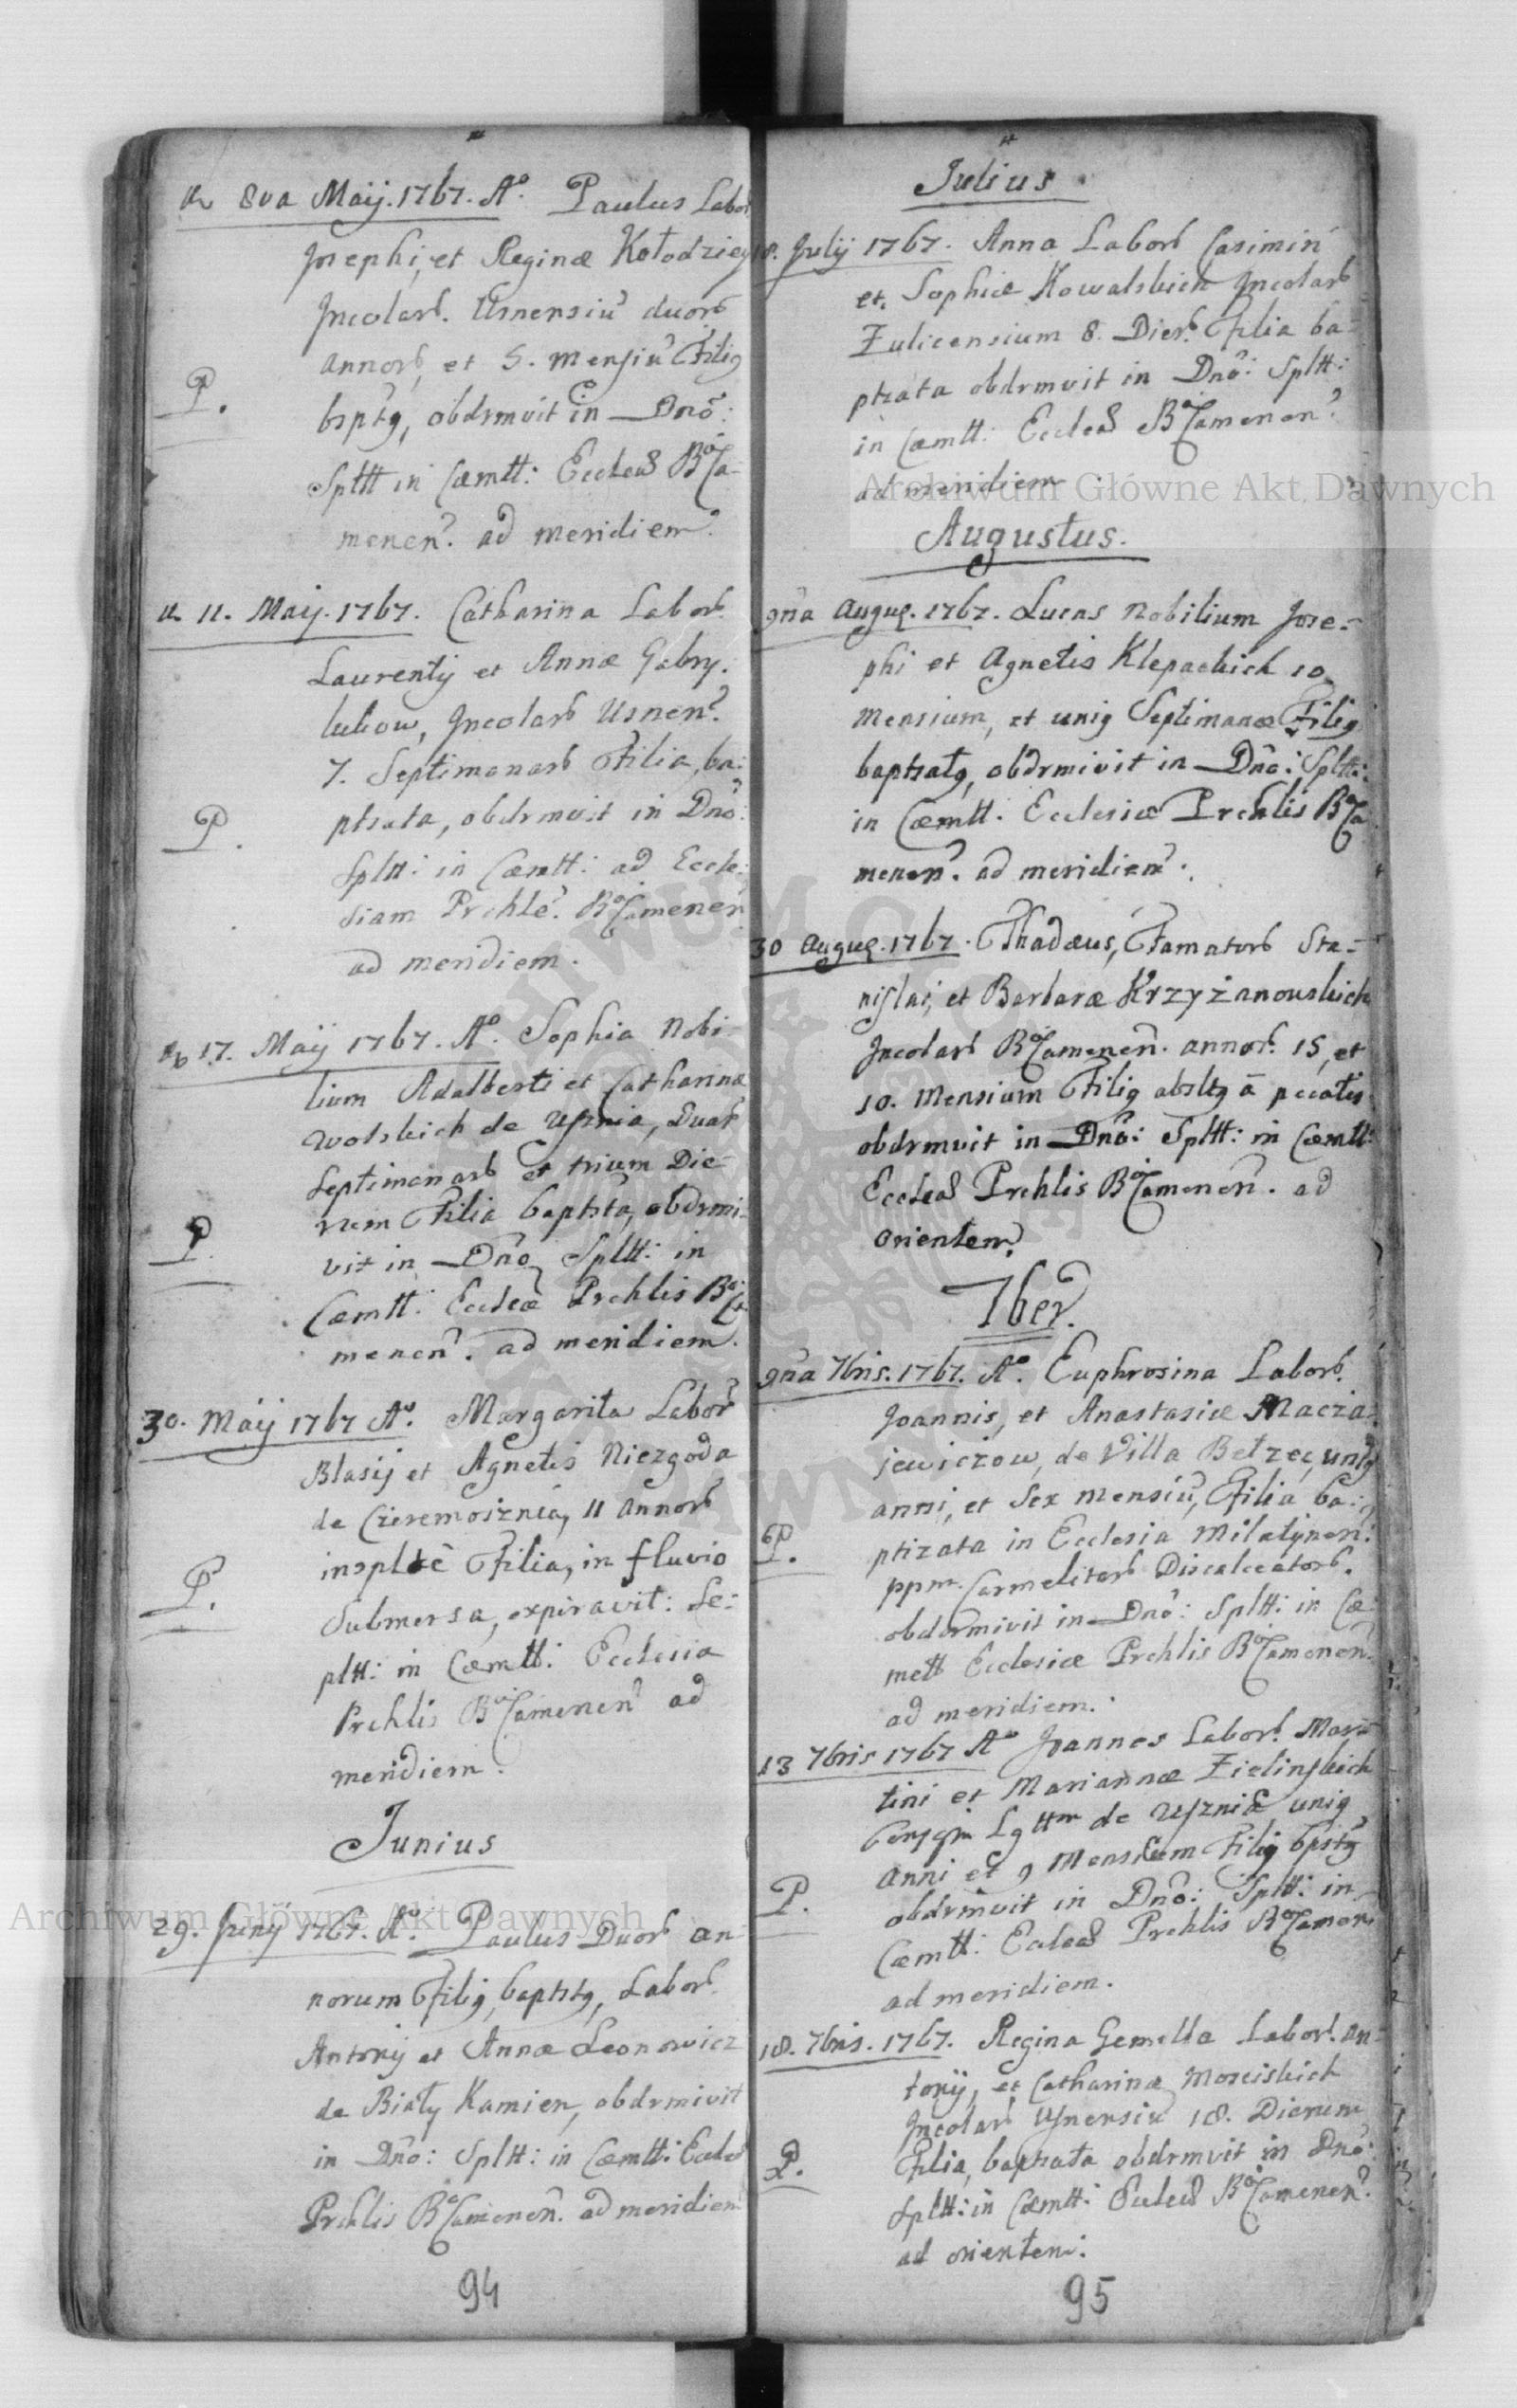 8va Maij. 1767. A°. Paulus Labor
Josephi, et Reginæ Kołodziey
Jncolarb. Usnensiu duorb
annorb, et 5. mensiu Filig
bsptg, obdrmvit in Dnō:
Spltt in Cæmtt: Eccleæ BCa-
menen. ad meridiem.
P.
11. Maij. 1767. Catharina Laborb
Laurentij et Annæ Gabry.
lukow, Jncolarb Usnen.
7. Septimanarb Filia, ba:
ptsata, obdrmvit in Dnō:
P.
Spltt: in Cæmtt: ad Eccle:
siam Prchle. BCamenen
ad meridiem.
17. Maij 1767. A°. Sophia Nobi
lium Adalberti et Catharinæ
Wolskich de Uſznia, Duarb
Septimanarb et trium Die-
rum Filia baptsta, obdrmi-
vit in Dnō Spltt: in
P
Cæmtt: Eccleæ Prchlis BCa
menen. ad meridiem.
30. Maij 1767 A°. Margarita Labor
Blasij et Agnetis Niezgoda
de Czeremosznia, 11 annorb
insplte Filia, in fluvio
Submersa, expiravit: Se:
P.
pltt: in Cæmtt: Ecclesia
Prchlis BCamenen ad
meridiem.
Junius
29. Junij 1767. A°. Paulus Duorb an
norum Filig, baptstg, Laborb
Antonij et Annæ Leonowicz
de Biały Kamien, obdrmivit
in Dnō: Spltt: in Cæmtt: Eccleæ
Prchlis BCamenen. ad meridiem
94
Julius
18. Julij 1767. Anna Laborb Casimiri
et Sophiæ Kowalskich Jncolarb
Zulicensium 8. Dierb. Filia ba-
ptzata obdrmvit in Dnō: Spltt:
in Cæmtt: Eccleæ BCamenen.
ad meridiem.
Augustus.
9na Augug. 1767. Lucas Nobilium Jose-
phi et Agnetis Klepackich 10
Mensium, et unig Septimanæ Filig
baptzatg, obdrmivit in Dnō: Spltt:
in Cæmtt: Ecclesiæ Prchlis BCa
menen. ad meridiem.
30 Augug. 1767. Thadæus, Famatorb Sta-
niſlai, et Barbaræ Krzyżanowskich
Jncolarb BCamenen. annorb. 15, et
10. Mensium Filig absltg à pccatis
obdrmvit in Dnō: Spltt: in Cæmtt:
Eccleæ Prchlis BCamenen. ad
orientem.
7ber.
9na 7bris. 1767. A°. Euphrosina Laborb.
Joannis, et Anastasiæ Macza-
jewiczow, de Villa Bełzec, unig
anni, et Sex mensiu, Filia ba:
ptizata in Ecclesia Milatynen:
P.
ppm. Carmelitarb Discalceatorb.
obdormivit in Dnō: Spltt: in Cæ:
mett Ecclesiæ Prchlis BCamenen.
ad meridiem.
13 7bris 1767 A° Joannes Laborb. Mar-
tini et Mariannæ Zielinſkich
de Uſzniæ unig
anni et 9 Mensium Filig bpstg
obdrmvit in Dnō: Spltt: in
P.
Cæmtt: Eccleæ Prchlis BCamen
ad meridiem.
18. 7bris. 1767. Regina Gemella Laborb. An-
tonij, et Catharinæ Mosciskich
Jncolarb Usnensiu 18. Dierum
Filia, baptzata obdrmvit in Dnō:
P.
Spltt: in Cæmtt: Eccleæ BCamenen.
ad orientem.
95
Archiwum Główne Akt Dawnych
Archiwum Główne Akt Dawnych